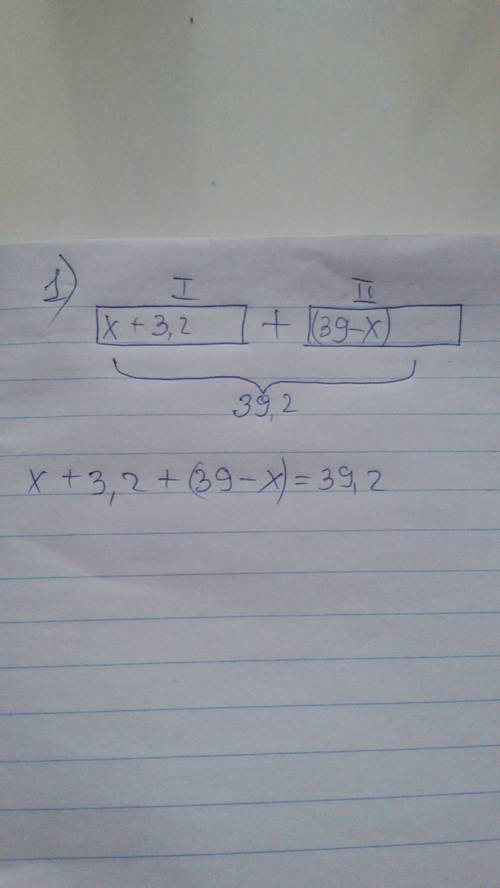 1) I II
x + 3,2 + (39-x)
39,2
x + 3,2 + (39 - x) = 39,2